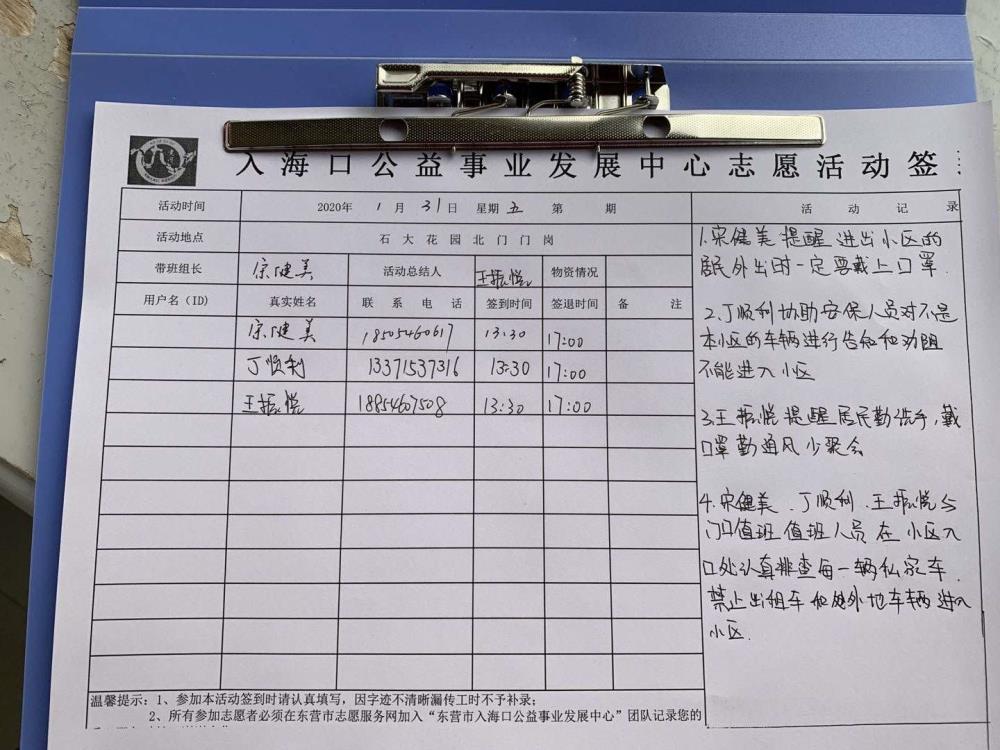 入海口公益事业发展中心志愿活动签
活动时间 2020年 1 月 31 日 星期 五 第 期 活动记录
活动地点 石大花园北门门岗
带班组长 宋健美 活动总结人 王振悦 物资情况
用户名（ID） 真实姓名 联系电话 签到时间 签退时间 备注
宋健美 18505460617 13:30 17:00
丁顺利 13371537316 13:30 17:00
王振悦 18854607508 13:30 17:00
1.宋健美提醒进出小区的
居民外出时一定要戴上口罩.
2.丁顺利协助安保人员对不是
本小区的车辆进行告知和劝阻
不能进入小区
3.王振悦提醒居民勤洗手,戴
口罩勤通风少聚会
4.宋健美、丁顺利、王振悦与
门口值班值班人员在小区入
口处认真排查每一辆私家车.
禁止出租车和外地车辆进入
小区.
温馨提示：1、参加本活动签到时请认真填写，因字迹不清晰漏传工时不予补录；
2、所有参加志愿者必须在东营市志愿服务网加入“东营市入海口公益事业发展中心”团队记录您的